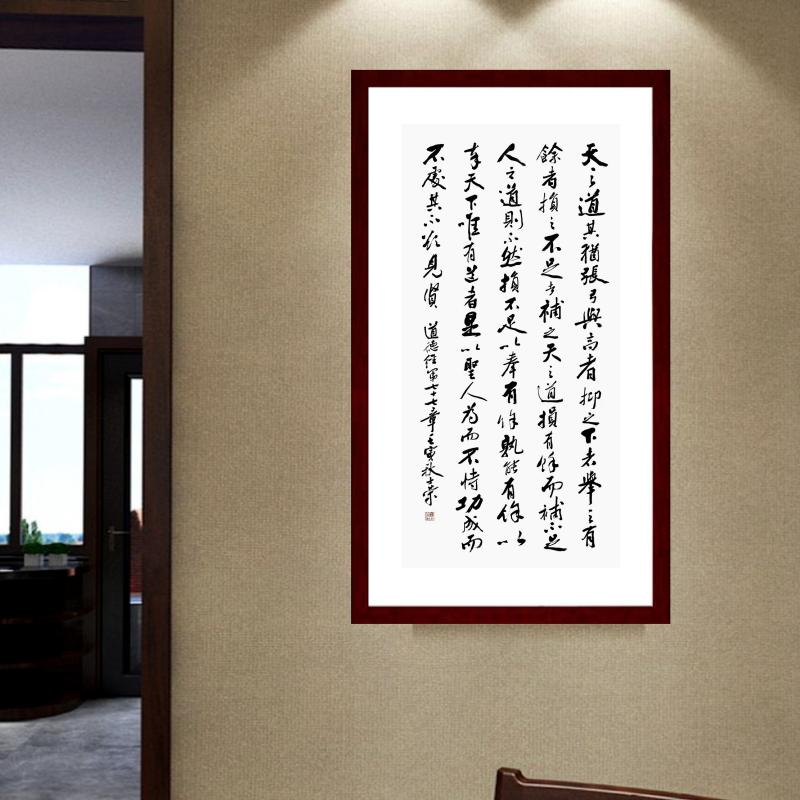 天之道其猶張弓與高者抑之下者舉之有
餘者損之不足者補之天之道損有餘而補不足
人之道則不然損不足以奉有餘孰能有餘以
奉天下唯有道者是以聖人為而不恃功成而
不處其不欲見賢 道德經第七十七章壬寅秋